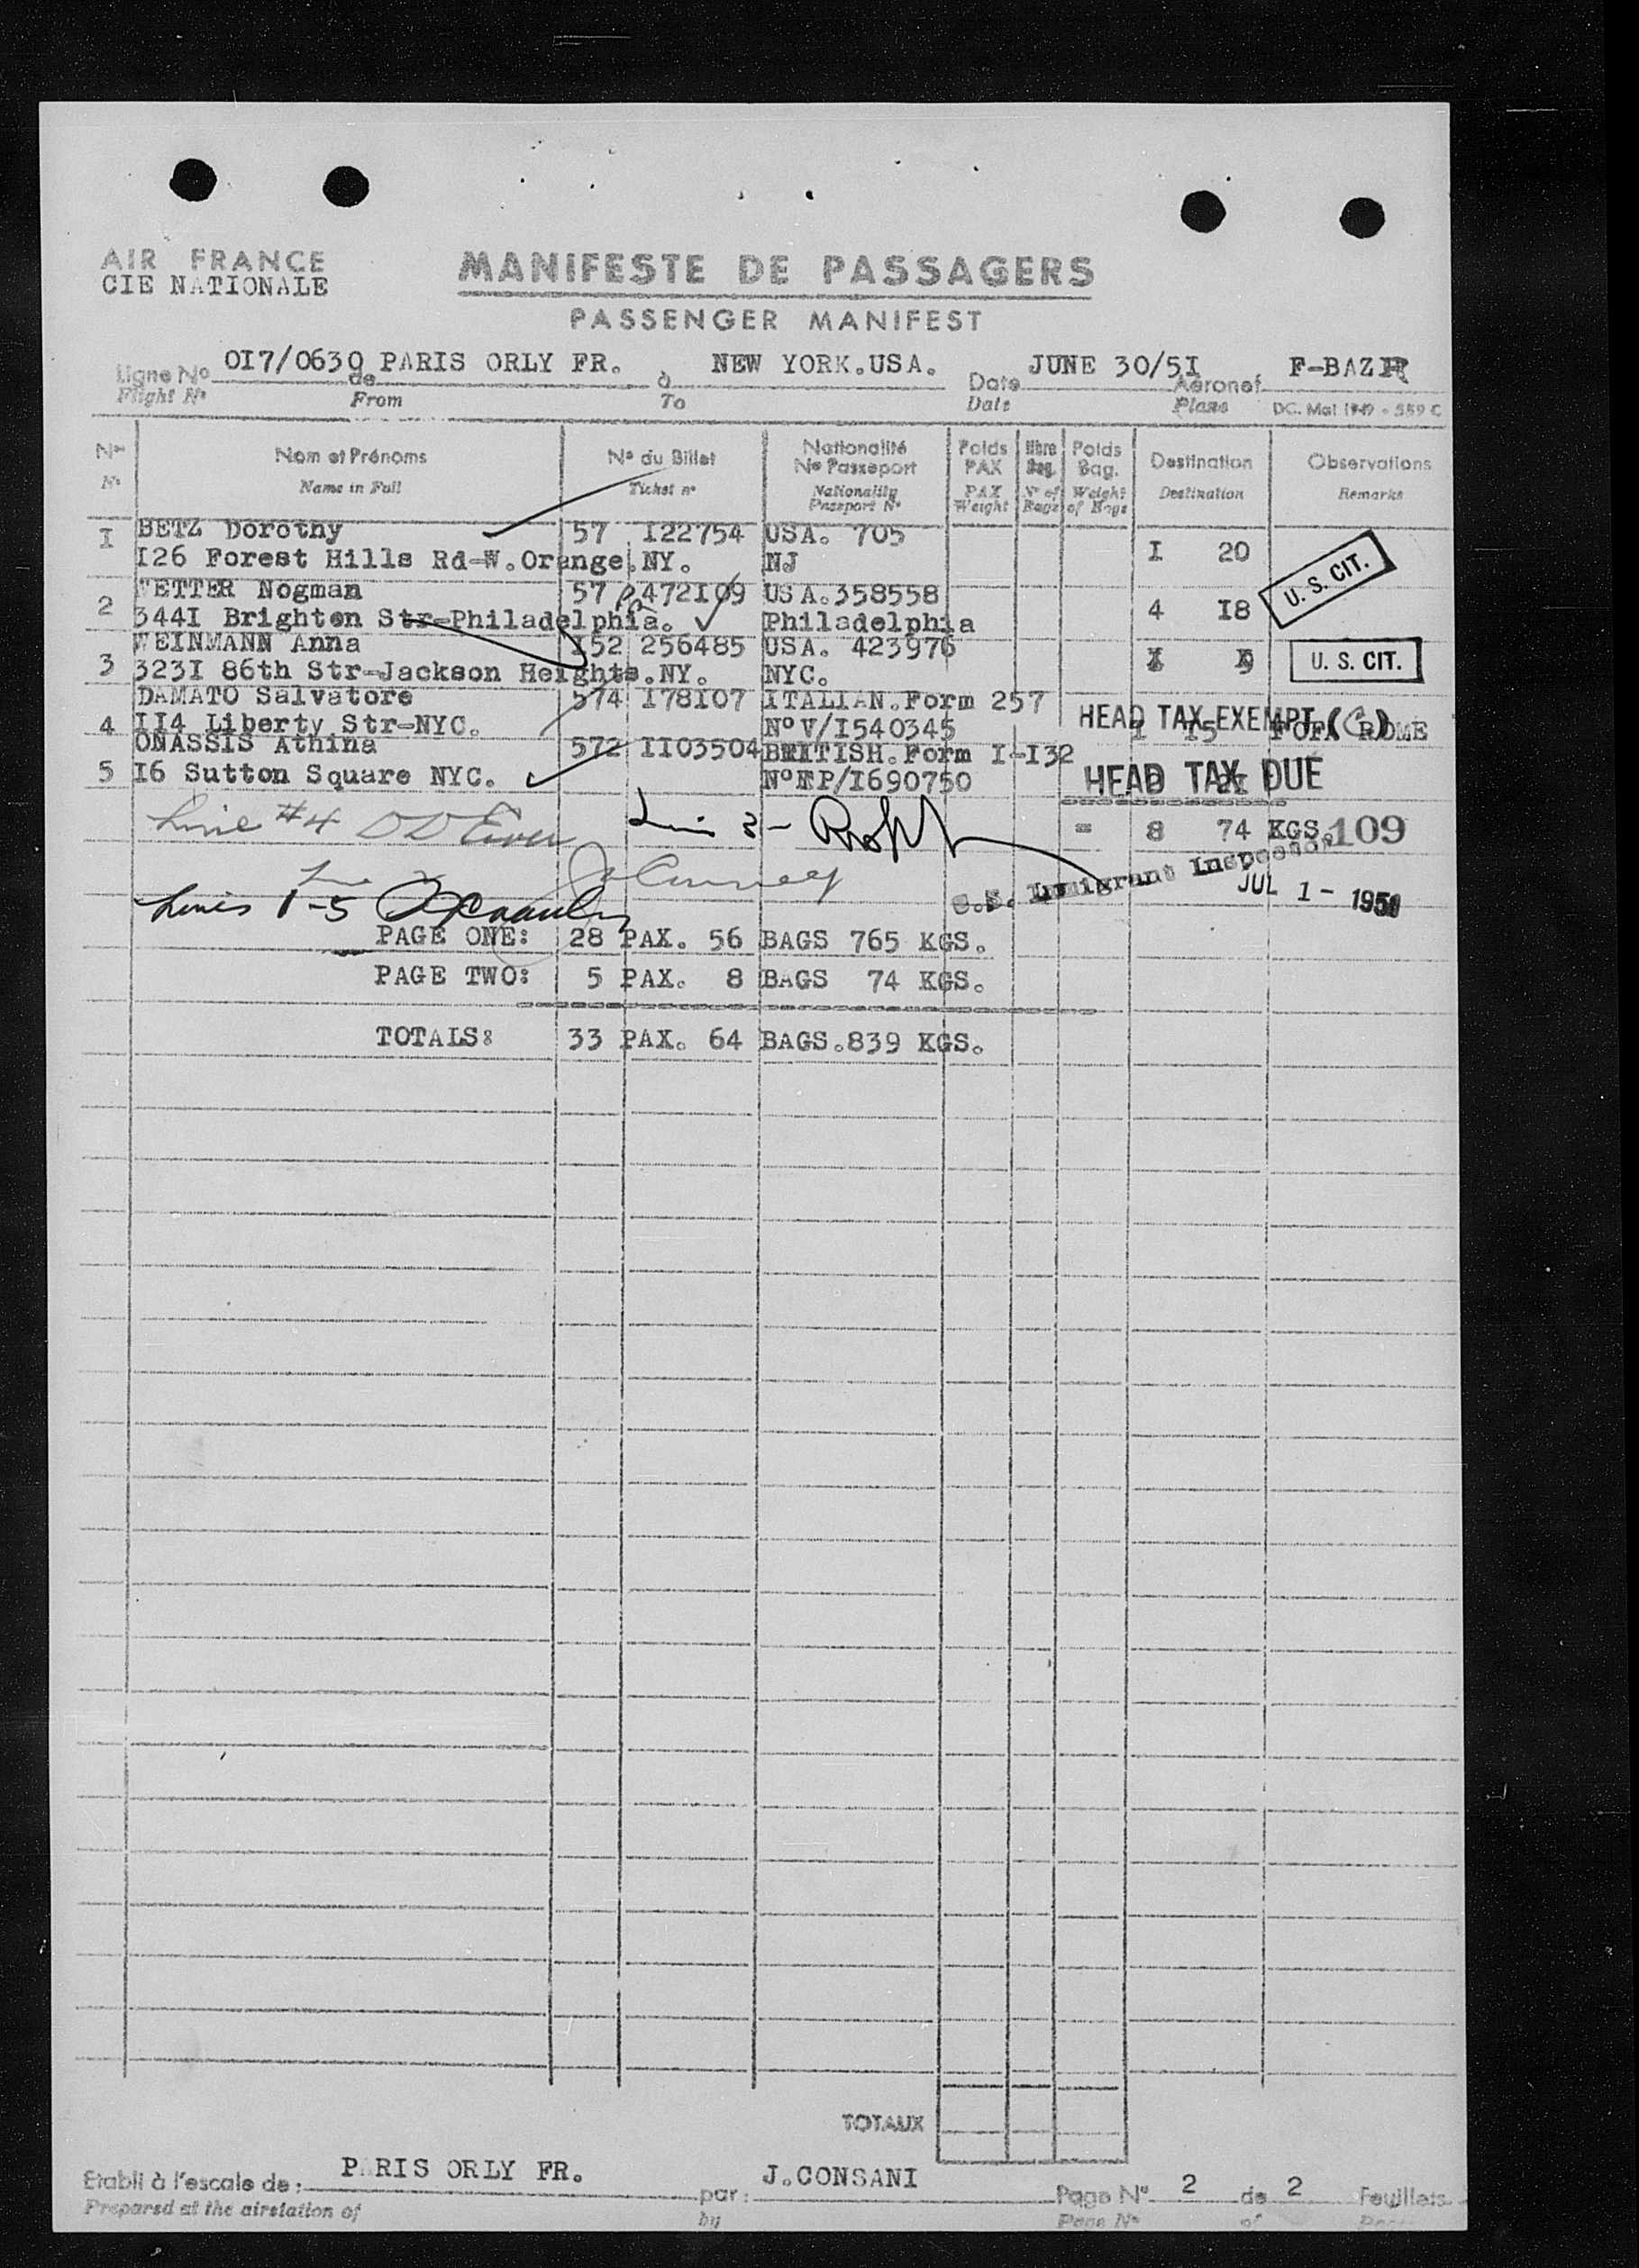 AIR FRANCE
CIE NATIONALE
MANIFESTE DE PASSAGERS
PASSENGER MANIFEST
Ligne No OI7/0630 de PARIS ORLY FR. à NEW YORK.USA. Date JUNE 30/5I Aéronef F-BAZ
Flight No From To Date Plane DC. Mai 1949 - 559 C
No Nom et Prénoms No du Billet Nationalité No Passeport Poids PAX Nbre Bag. Poids Bag. Destination Observations
No Name in Full Ticket no Nationality Passport No PAX Weight No of Bags Weight of Bags Destination Remarks
I BETZ Dorothy 57 I22754 USA. 705
I26 Forest Hills Rd-W.Orange.NY. NJ I 20
2 VETTER Nogman 57 472I09 USA.358558
344I Brighton Str-Philadelphia. Philadelphia 4 I8 U. S. CIT.
3 WEINMANN Anna I52 256485 USA. 423976
323I 86th Str-Jackson Heights.NY. NYC. U. S. CIT.
4 DAMATO Salvatore 574 I78I07 ITALIAN.Form 257
II4 Liberty Str-NYC. No V/I540345 HEAD TAX EXEMPT (C) I I5 ROME
5 ONASSIS Athina 572 II03504 BRITISH.Form I-I32
I6 Sutton Square NYC. P/I690750 HEAD TAX DUE
Line #4
= 8 74 KGS. 109
U.S. Immigrant Inspector
JUL 1 - 1951
Lines 1-5
PAGE ONE: 28 PAX. 56 BAGS 765 KGS.
PAGE TWO: 5 PAX. 8 BAGS 74 KGS.
TOTALS: 33 PAX. 64 BAGS.839 KGS.
TOTAUX
Etabli à l'escale de: PARIS ORLY FR. par: J.CONSANI Page No 2 de 2 Feuillets
Prepared at the airstation of by Page No of